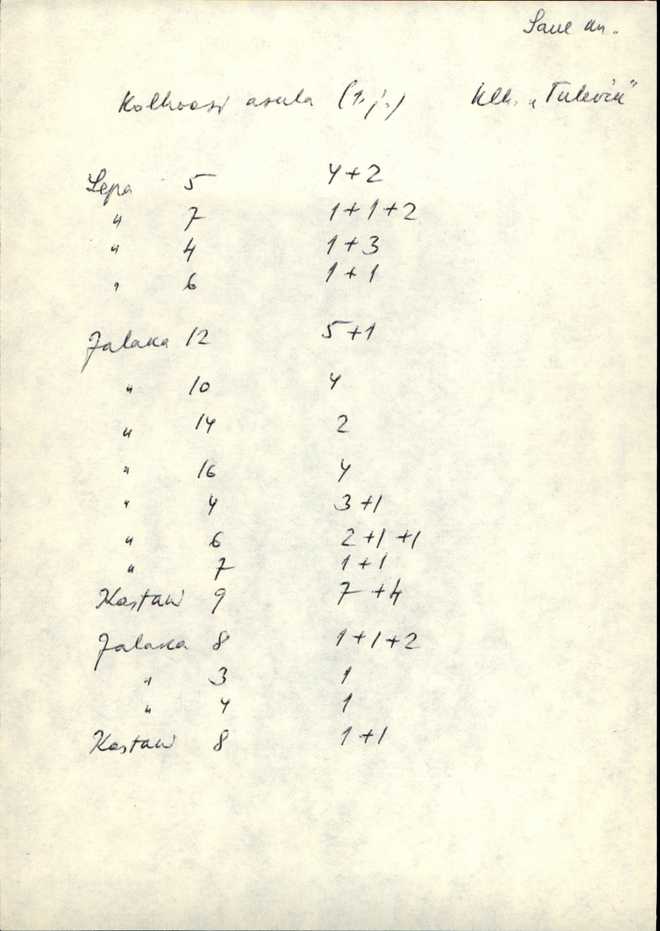 Saue kn.
Kolhoosi asula (1. j.) Klh. „Tulevik"
Lepa 5 4+2
" 7 1+1+2
" 4 1+3
" 6 1+1
Jalaka 12 5+1
" 10 4
" 14 2
" 16 4
" 4 3+1
" 6 2+1+1
" 7 1+1
Kastani 9 7+4
Jalaka 8 1+1+2
" 3 1
" 4 1
Kastani 8 1+1